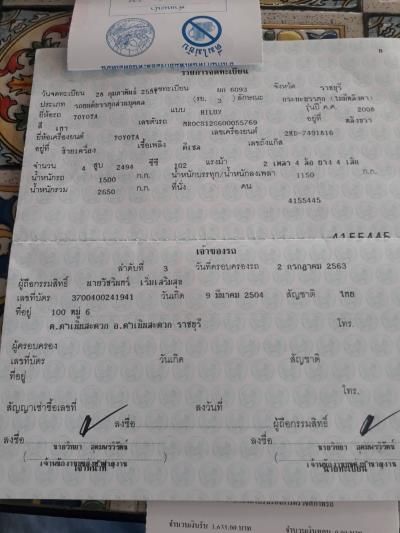 ดื่มไม่ขับ
รายการจดทะเบียน
วันจดทะเบียน 28 กุมภาพันธ์ เลขทะเบียน ผก 6093 จังหวัด ราชบุรี
ประเภท รถยนต์บรรทุกส่วนบุคคล (รย. 3) ลักษณะ กระบะบรรทุก (ไม่มีหลังคา)
ยี่ห้อรถ TOYOTA แบบ HILUX รุ่นปี ค.ศ. 2008
สี เทา เลขตัวรถ MR0CS12G600055769 อยู่ที่
ยี่ห้อเครื่องยนต์ TOYOTA เลขเครื่องยนต์ 2KD-7491816
อยู่ที่ เชื้อเพลิง ดีเซล เลขถังแก๊ส
จำนวน 4 สูบ 2494 ซีซี 102 แรงม้า 2 เพลา 4 ล้อ ยาง 4 เส้น
น้ำหนักรถ 1500 ก.ก. น้ำหนักบรรทุก/น้ำหนักลงเพลา 1150 ก.ก.
น้ำหนักรวม 2650 ก.ก. ที่นั่ง คน
4155445
4155445
เจ้าของรถ
ลำดับที่ 3 วันที่ครอบครองรถ 2 กรกฎาคม 2563
ผู้ถือกรรมสิทธิ์ นายวัชรินทร์ เริ่มเสริมสุข
เลขที่บัตร 3700400241941 วันเกิด 9 มีนาคม 2504 สัญชาติ ไทย
ที่อยู่ 100 หมู่ 6
ต.ดำเนินสะดวก อ.ดำเนินสะดวก ราชบุรี โทร.
ผู้ครอบครอง
เลขที่บัตร วันเกิด สัญชาติ
ที่อยู่
โทร.
สัญญาเช่าซื้อเลขที่ ลงวันที่
ลงชื่อ ผู้ถือกรรมสิทธิ์
ลงชื่อ ลงชื่อ
นายวิทยา อุดมพรวิรัตน์ นายวิทยา อุดมพรวิรัตน์
นายทะเบียน
จำนวนเงินรับ 1,633.00 บาท